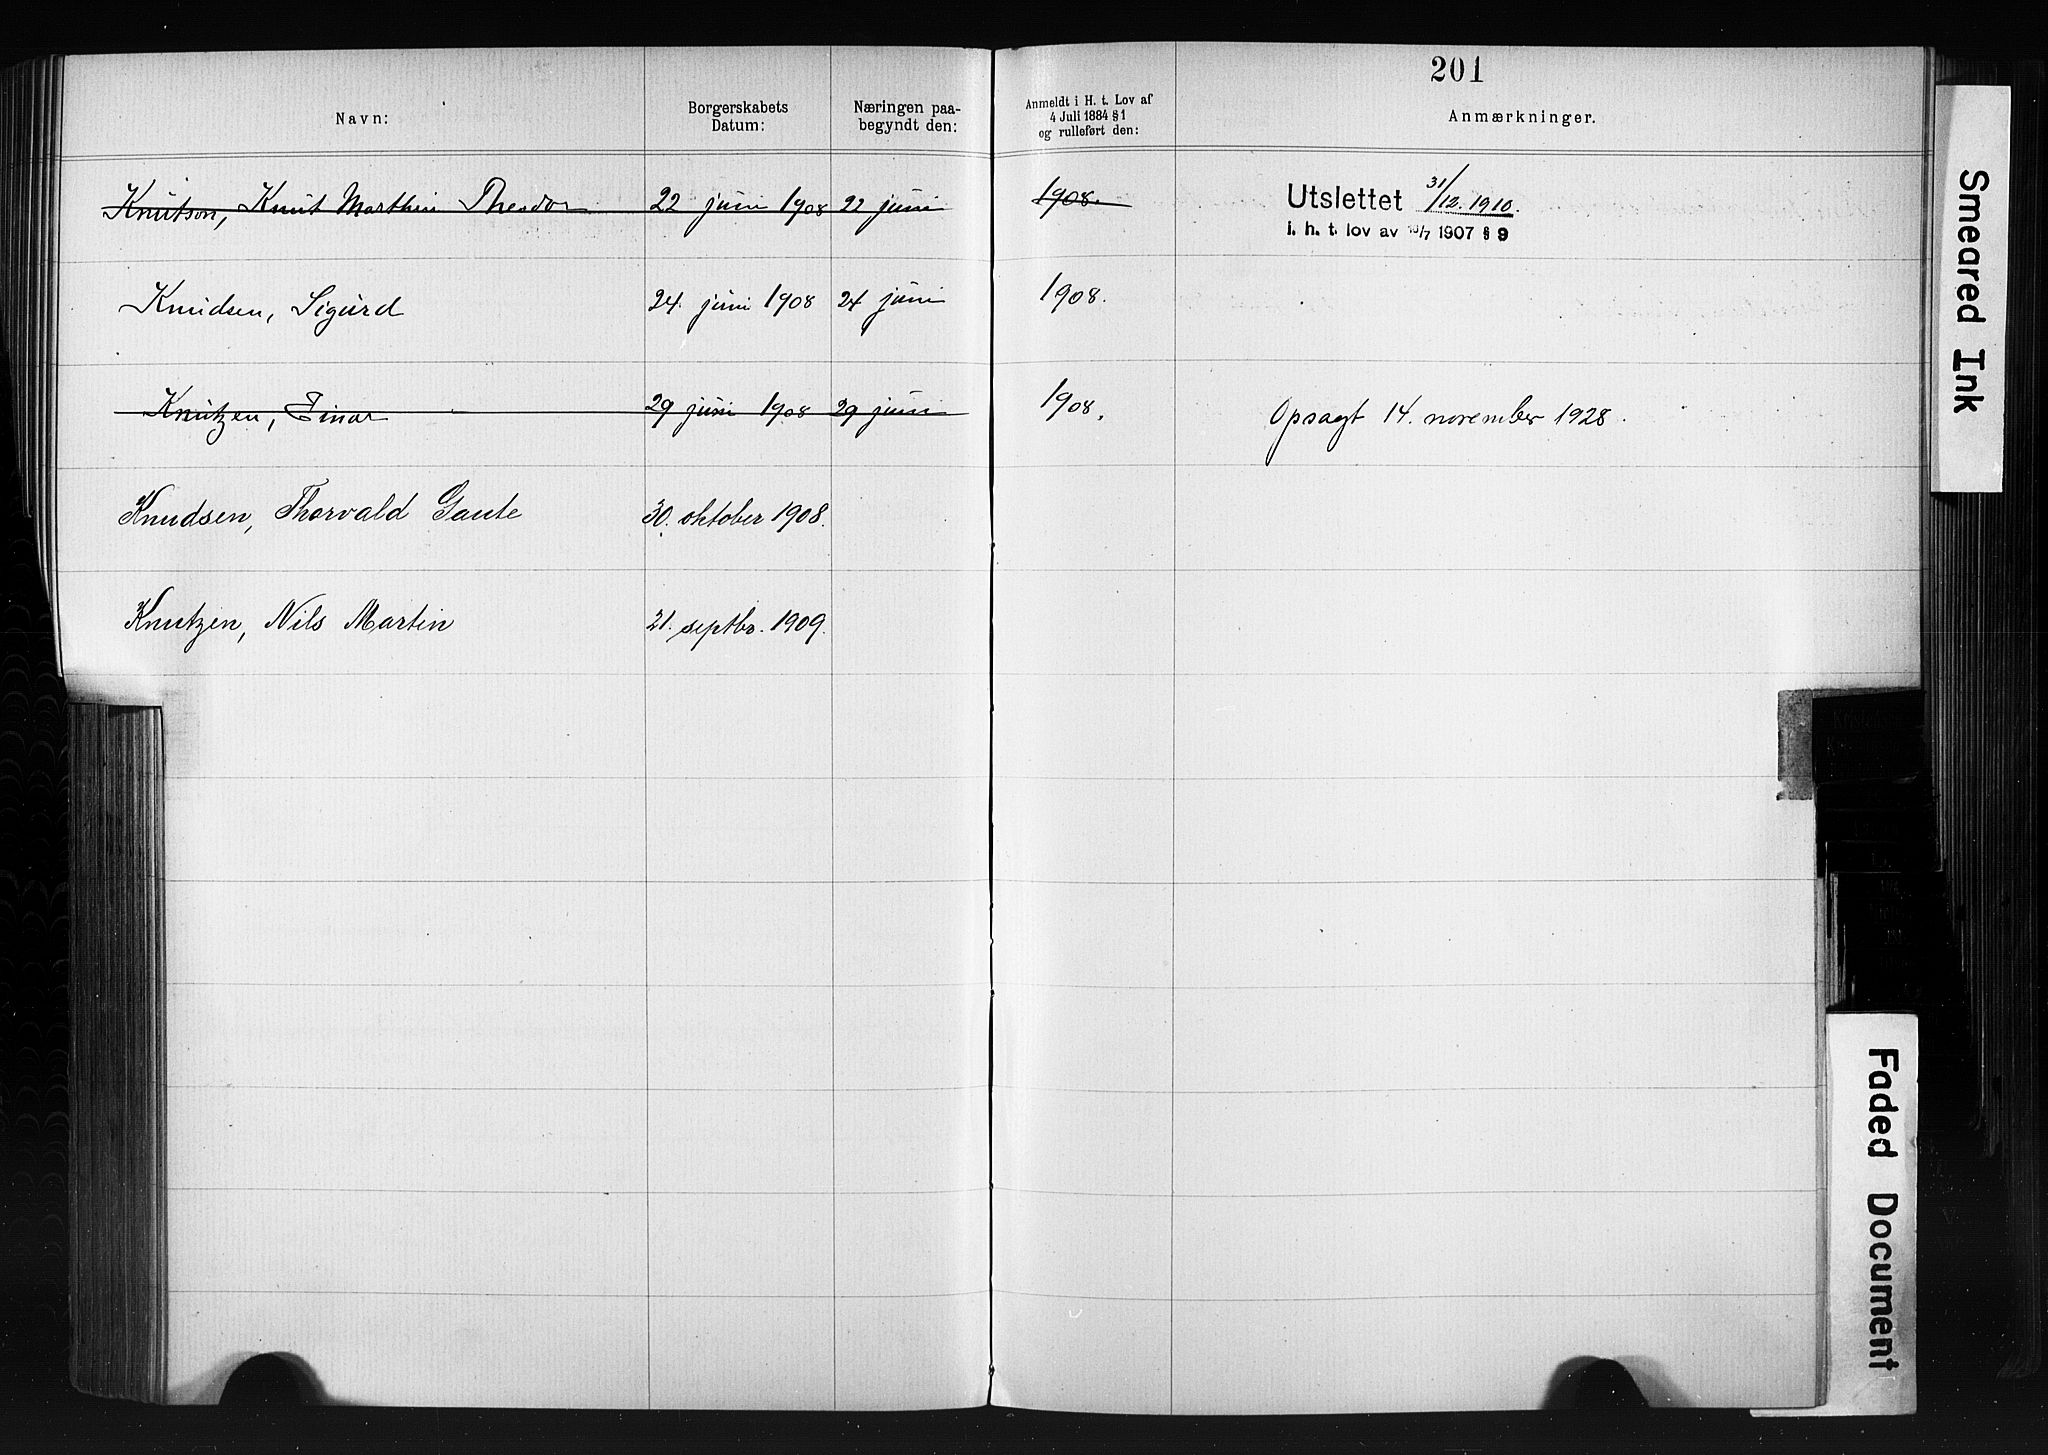 201
Navn:
Borgerskabets
Datum:
Næringen paa-
begyndt den:
Anmeldt i H. t. Lov af
4 Juli 1884 § 1
og rulleført den:
Anmærkninger.
Knutson, Knut Marthin Theodor 22 juni 1908 22 juni 1908.
Utslettet 31/12. 1910.
i. h. t. lov av /7 1907 § 9
Knudsen, Sigurd 24. juni 1908 24 juni 1908.
Knutzen, Einar 29 juni 1908 29 juni 1908. Opsagt 14. november 1928.
Knudsen, Thorvald Gaute 30. oktober 1908.
Knutzen, Nils Martin 21. septbr. 1909.
Smeared Ink
Faded Document